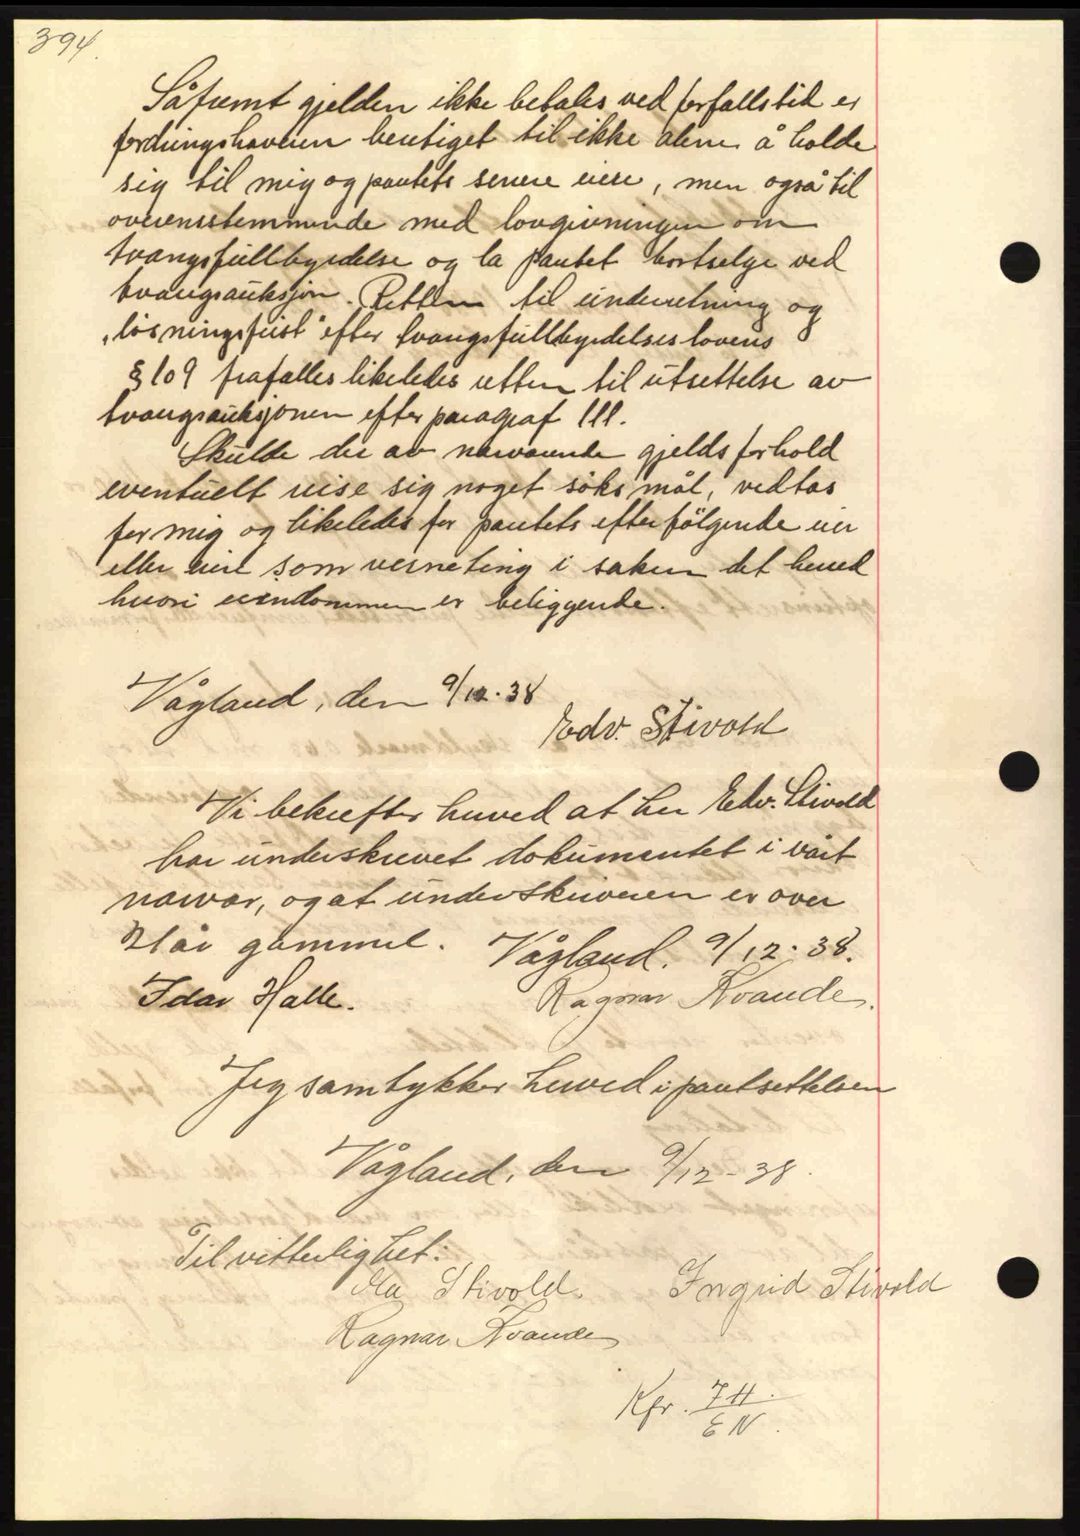 394.
Såfremt gjelden ikke betales ved forfallstid er
fordringshaveren berettiget til ikke alene å holde
sig til mig og pantets senere eiere, men også til
overensstemmende med lovgivningen om
tvangsfullbyrdelse og la pantet bortselge ved
tvangsauksjon. Retten til underretning og
„løsningsfrist" efter tvangsfullbyrdelseslovens
§ 109 frafalles likeledes retten til utsettelse av
tvangsauksjonen efter paragraf 111.
Skulde der av nærværende gjeldsforhold
eventuelt reise sig noget söksmål, vedtas
for mig og likeledes for pantets efterfölgende eier
eller eiere som verneting i saken det herred
hvori eiendommen er beliggende.
Vågland, den 9/12.38
Edv. Stivold
Vi bekrefter herved at herr Edv. Stivold
har underskrevet dokumentet i vårt
nærvær, og at underskriveren er over
21 år gammel. Vågland. 9/12. 38.
Idar Halle. Ragnar Kvande.
Jeg samtykker herved i pantsettelsen
Vågland, den 9/12 - 38.
Til vitterlighet:
Stivold. Ingrid Stivold
Ragnar Kvande
Kfr. IH.
EN.